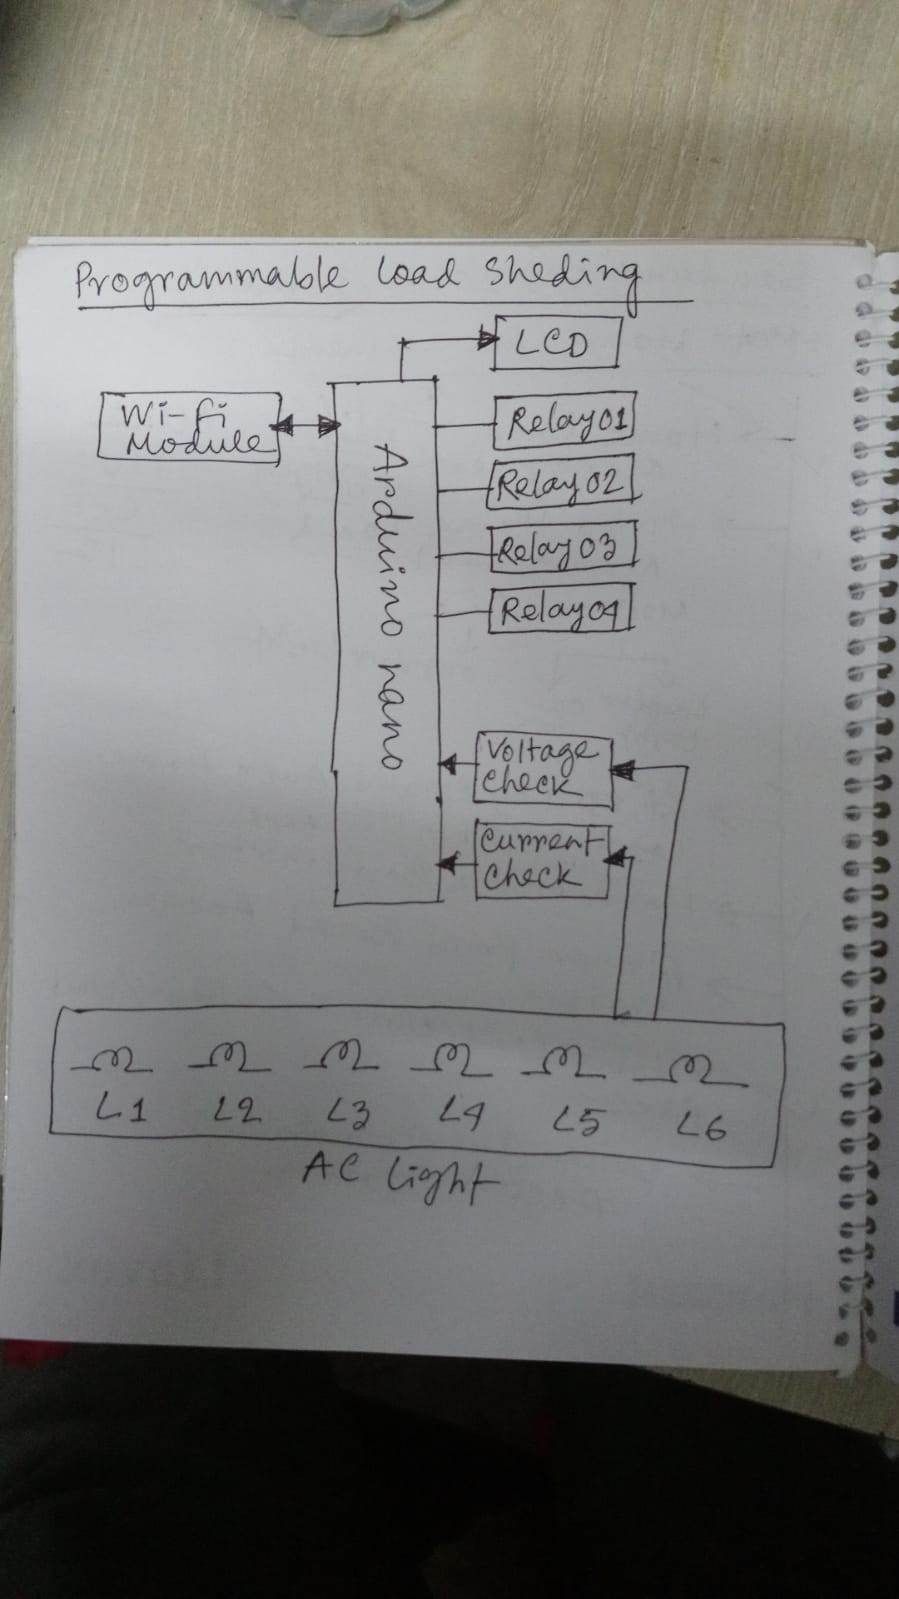 Programmable Load Sheding
LCD
Wi-fi
Module
Relay01
Relay02
Relay03
Relay04
Arduino nano
Voltage
check
Current
check
L1 L2 L3 L4 L5 L6
AC Light